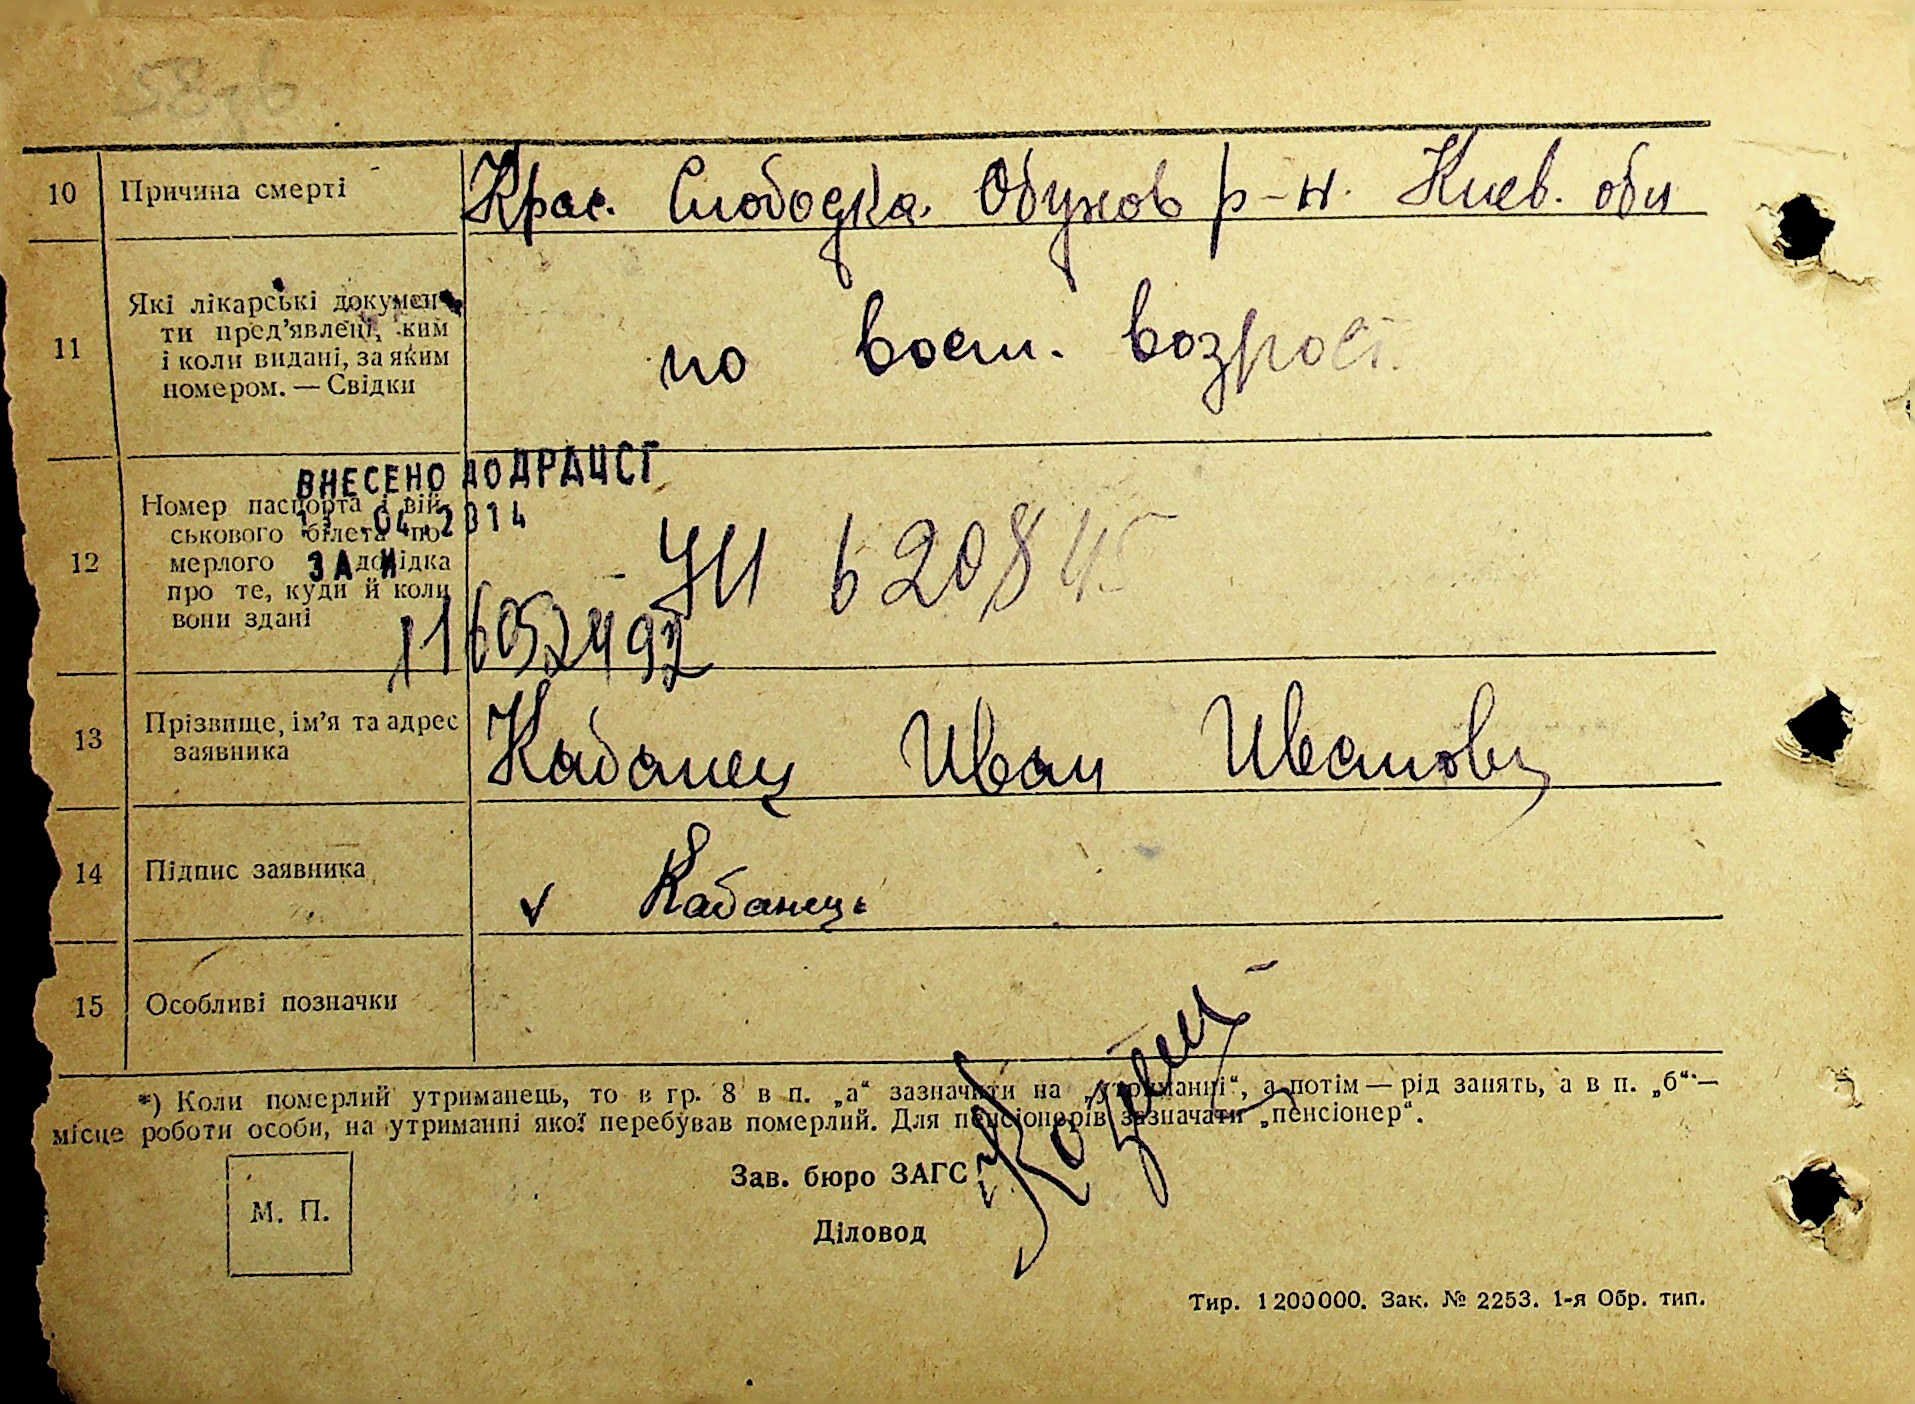 10 Причина смерті Крас. Слободка. Обухов р-н. Киев. обл
11 Які лікарські докумен-
ти пред'явлені, ким
і коли видані, за яким
номером. — Свідки
по воен. возраст.
ВНЕСЕНО ДО ДРАЦСГ
04.2014
ЗА №
116052492
12 Номер паспорта і вій-
ськового білета по-
мерлого і довідка
про те, куди й коли
вони здані
620845
13 Прізвище, ім'я та адрес
заявника
Кабанец Иван Иванович
14 Підпис заявника
v Кабанець
15 Особливі позначки
*) Коли померлий утриманець, то в гр. 8 в п. „а“ зазначити на „утриманні“, а потім — рід занять, а в п. „б“ —
місце роботи особи, на утриманні якої перебував померлий. Для пенсіонерів зазначати „пенсіонер“.
Зав. бюро ЗАГС
М. П.
Діловод
Тир. 1200000. Зак. № 2253. 1-я Обр. тип.